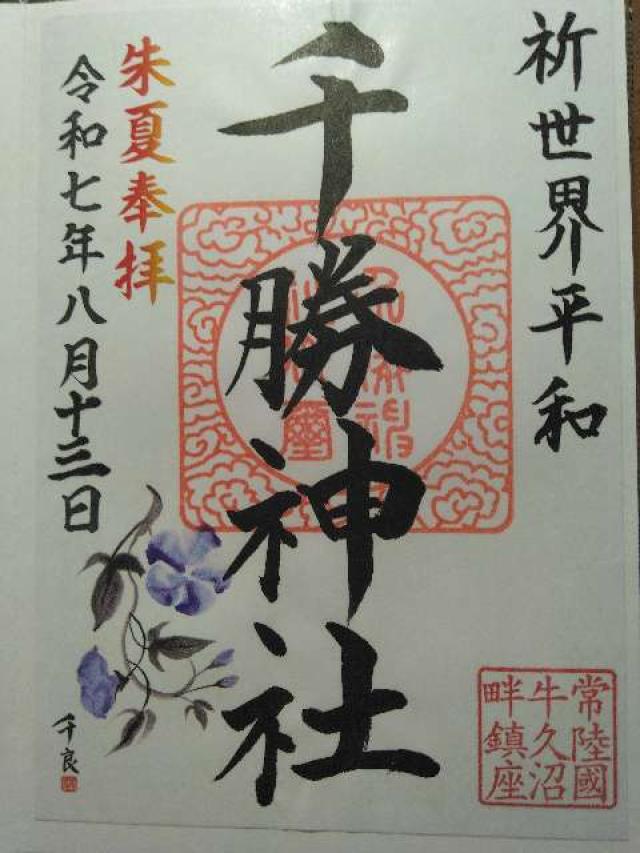 祈世界平和
常陸國
牛久沼
畔鎮座
千勝神社
朱夏奉拝
令和七年八月十三日
千良